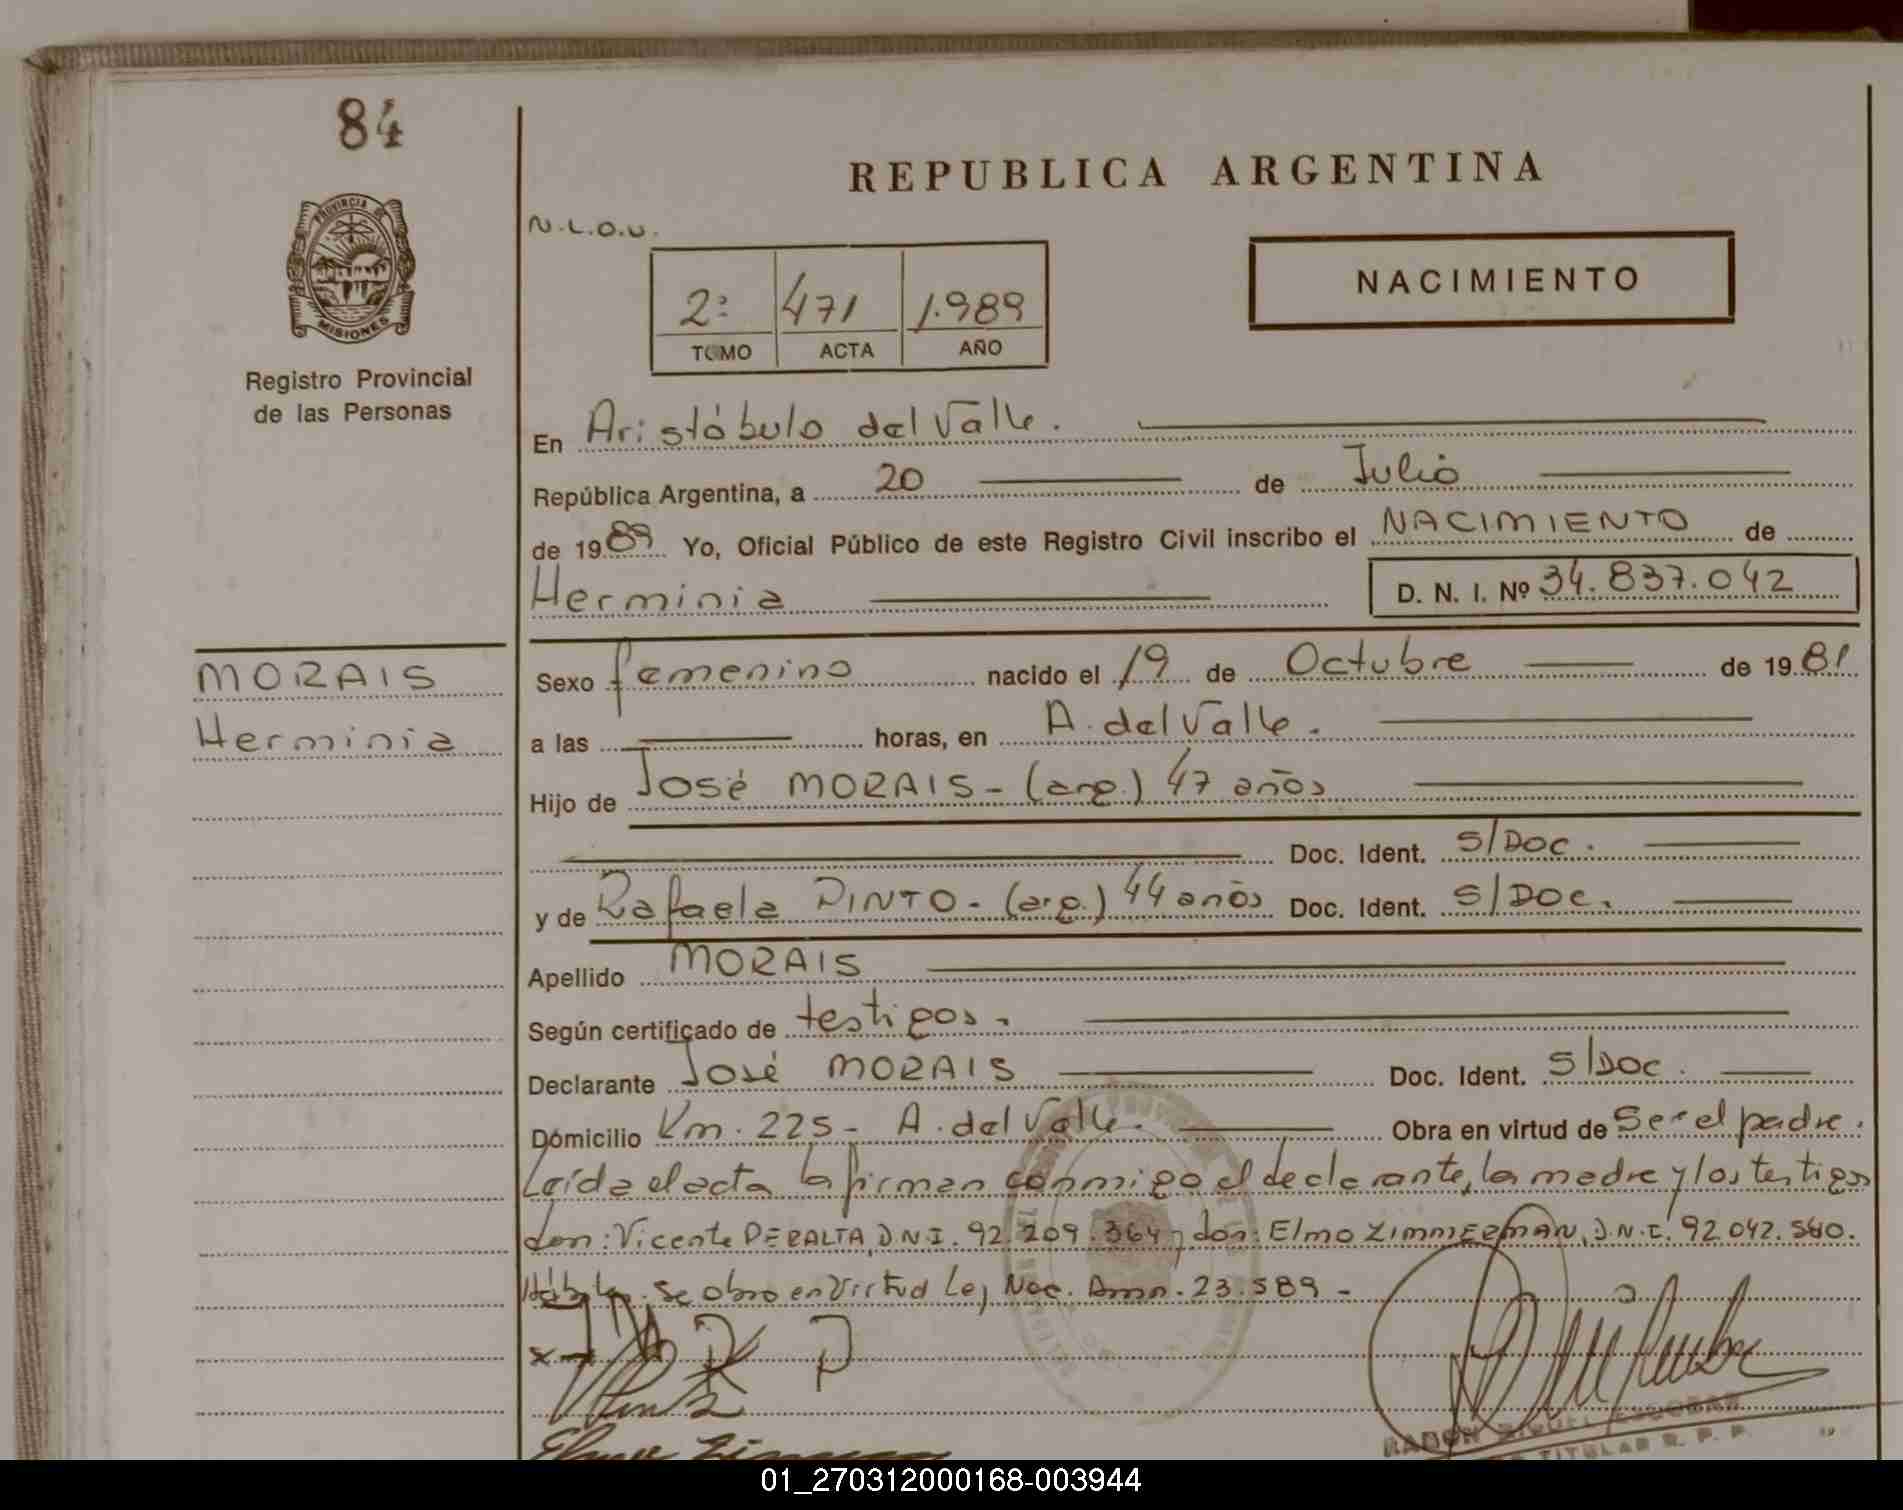 84
REPUBLICA ARGENTINA
PROVINCIA DE
MISIONES
Registro Provincial
de las Personas
N.L.O.U.
2º 471 1.989
TOMO ACTA AÑO
NACIMIENTO
En Aristóbulo del Valle.
República Argentina, a 20 de Julio
de 1989 Yo, Oficial Público de este Registro Civil inscribo el NACIMIENTO de
Herminia D. N. I. Nº 34.837.042
MORAIS
Herminia
Sexo femenino nacido el 19 de Octubre de 1981
a las horas, en A. del Valle.
Hijo de José MORAIS - (arg.) 47 años
Doc. Ident. S/Doc.
y de Rafaela PINTO - (arg.) 44 años Doc. Ident. S/Doc.
Apellido MORAIS
Según certificado de testigos.
Declarante José MORAIS Doc. Ident. S/Doc.
Domicilio Km. 225 - A. del Valle. Obra en virtud de Ser el padre.
Leída el acta la firman conmigo el declarante, la madre y los testigos
don: Vicente PERALTA, D.N.I. 92.209.364 y don: Elmo ZIMMERMAN, D.N.I. 92.042.540.
Se obro en Virtud Ley Nac. Amn. 23.589 -
RAMON MIGUEL ESCOBAR
TITULAR R. P. P.
01_270312000168-003944